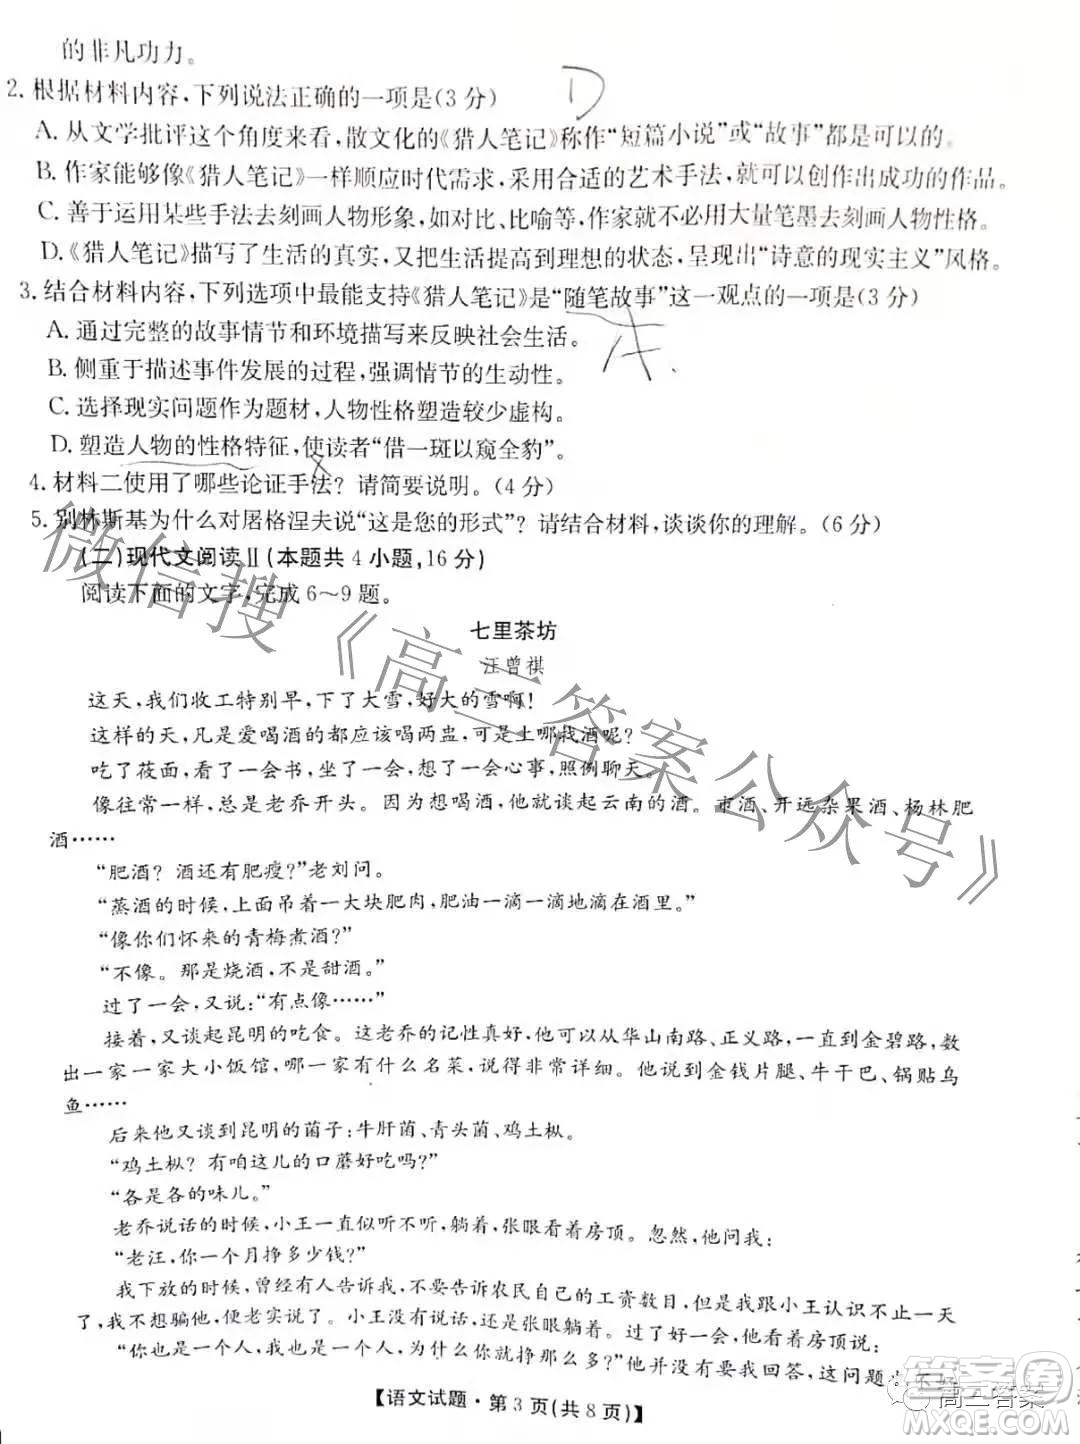 的非凡功力。
2.根据材料内容,下列说法正确的一项是(3分) D
A.从文学批评这个角度来看,散文化的《猎人笔记》称作“短篇小说”或“故事”都是可以的。
B.作家能够像《猎人笔记》一样顺应时代需求,采用合适的艺术手法,就可以创作出成功的作品。
C.善于运用某些手法去刻画人物形象,如对比、比喻等,作家就不必用大量笔墨去刻画人物性格。
D.《猎人笔记》描写了生活的真实,又把生活提高到理想的状态,呈现出“诗意的现实主义”风格。
3.结合材料内容,下列选项中最能支持《猎人笔记》是“随笔故事”这一观点的一项是(3分)
A.通过完整的故事情节和环境描写来反映社会生活。 A.
B.侧重于描述事件发展的过程,强调情节的生动性。
C.选择现实问题作为题材,人物性格塑造较少虚构。
D.塑造人物的性格特征,使读者“借一斑以窥全豹”。
4.材料二使用了哪些论证手法?请简要说明。(4分)
5.别林斯基为什么对屠格涅夫说“这是您的形式”?请结合材料,谈谈你的理解。(6分)
(二)现代文阅读Ⅱ(本题共4小题,16分)
阅读下面的文字,完成6~9题。
七里茶坊
汪曾祺
这天,我们收工特别早,下了大雪,好大的雪啊!
这样的天,凡是爱喝酒的都应该喝两盅,可是上哪找酒呢?
吃了莜面,看了一会书,坐了一会,想了一会心事,照例聊天。
像往常一样,总是老乔开头。因为想喝酒,他就谈起云南的酒。市酒、开远杂果酒、杨林肥
酒……
“肥酒?酒还有肥瘦?”老刘问。
“蒸酒的时候,上面吊着一大块肥肉,肥油一滴一滴地滴在酒里。”
“像你们怀来的青梅煮酒?”
“不像。那是烧酒,不是甜酒。”
过了一会,又说:“有点像……”
接着,又谈起昆明的吃食。这老乔的记性真好,他可以从华山南路、正义路,一直到金碧路,
数出一家一家大小饭馆,哪一家有什么名菜,说得非常详细。他说到金钱片腿、牛干巴、锅贴乌
鱼……
后来他又谈到昆明的菌子:牛肝菌、青头菌、鸡土枞。
“鸡土枞?有咱这儿的口蘑好吃吗?”
“各是各的味儿。”
老乔说话的时候,小王一直似听不听,躺着,张眼看着房顶。忽然,他问我:
“老汪,你一个月挣多少钱?”
我下放的时候,曾经有人告诉我,不要告诉农民自己的工资数目,但是我跟小王认识不止一天
了,我不想骗他,便老实说了。小王没有说话,还是张眼躺着。过了好一会,他看着房顶说:
“你也是一个人,我也是一个人,为什么你就挣那么多?”他并没有要我回答,这问题也不好
【语文试题·第3页(共8页)】
微信搜《高三答案公众号》
高三答案
答案圈
MXQE.COM